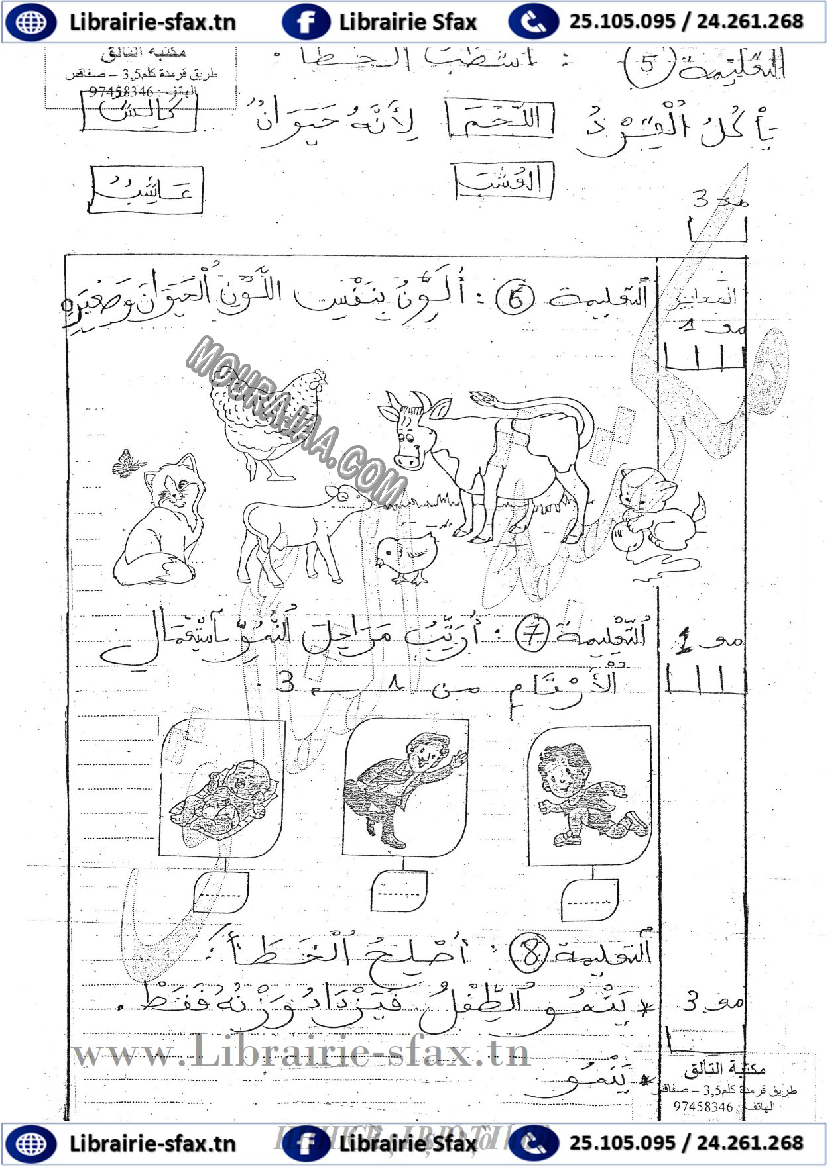 Librairie-sfax.tn Librairie Sfax 25.105.095 / 24.261.268
مكتبة التألق
طريق قرمدة كلم3,5 – صفاقس
الهاتف: 97458346
التعليمة 5 : أشطب الخطأ :
يَأْكُلُ الْقِرْدُ اللّحْمَ لِأَنَّهُ حَيَوَانٌ
العُشْبَ عَاشِبٌ
مع 3
المعايير
التعليمة 6 : أُلَوِّنُ بِنَفْسِ اللَّوْنِ الْحَيَوَانَ وَصَغِيرَهُ
مع 1
MOURAJAA.COM
التَّعْلِيمَة 7 : أُرَتِّبُ مَرَاحِلَ النُّمُوِّ بِاسْتِعْمَالِ
مع 1
الْأَرْقَامِ من 1 ← 3 .
التعليمة 8 : أُصْلِحُ الْخَطَأَ :
* يَنْمُو الطِّفْلُ فَيَزْدَادُ وَزْنُهُ فَقَطْ .
مع 3
www.Librairie-sfax.tn
* يَنْمُو
مكتبة التألق
طريق قرمدة كلم3,5 – صفاقس
الهاتف: 97458346
Librairie-sfax.tn Librairie Sfax 25.105.095 / 24.261.268